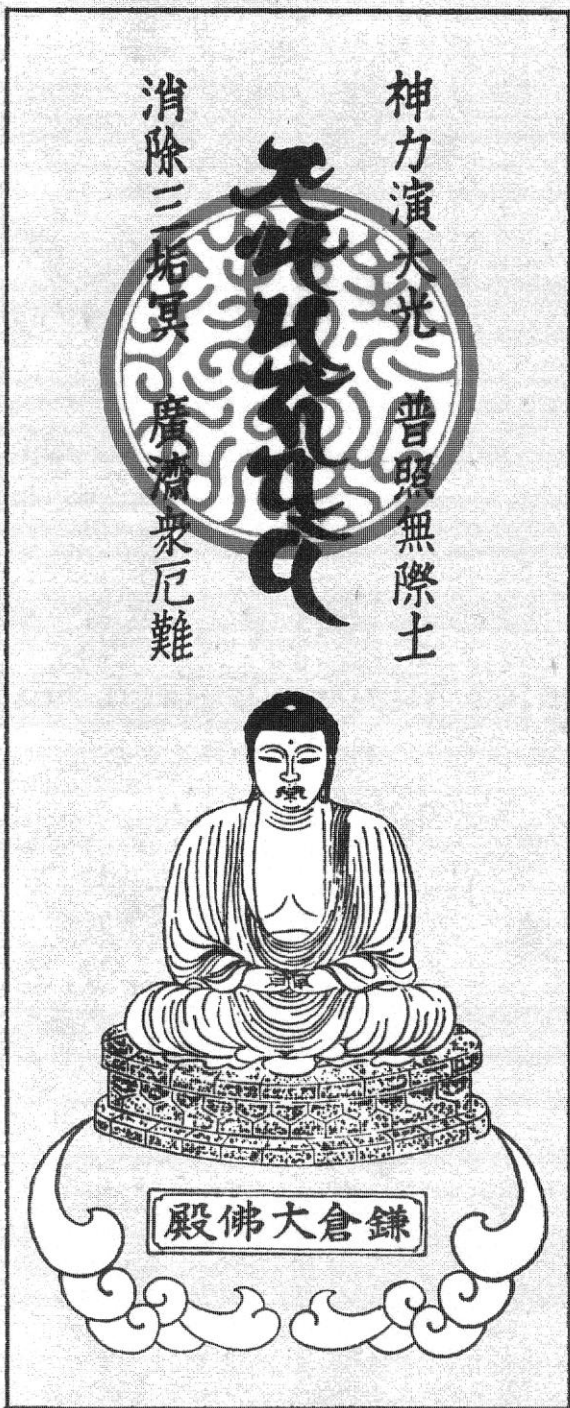 神力演大光 普照無際土
消除三垢冥 廣濟衆厄難
鎌倉大佛殿